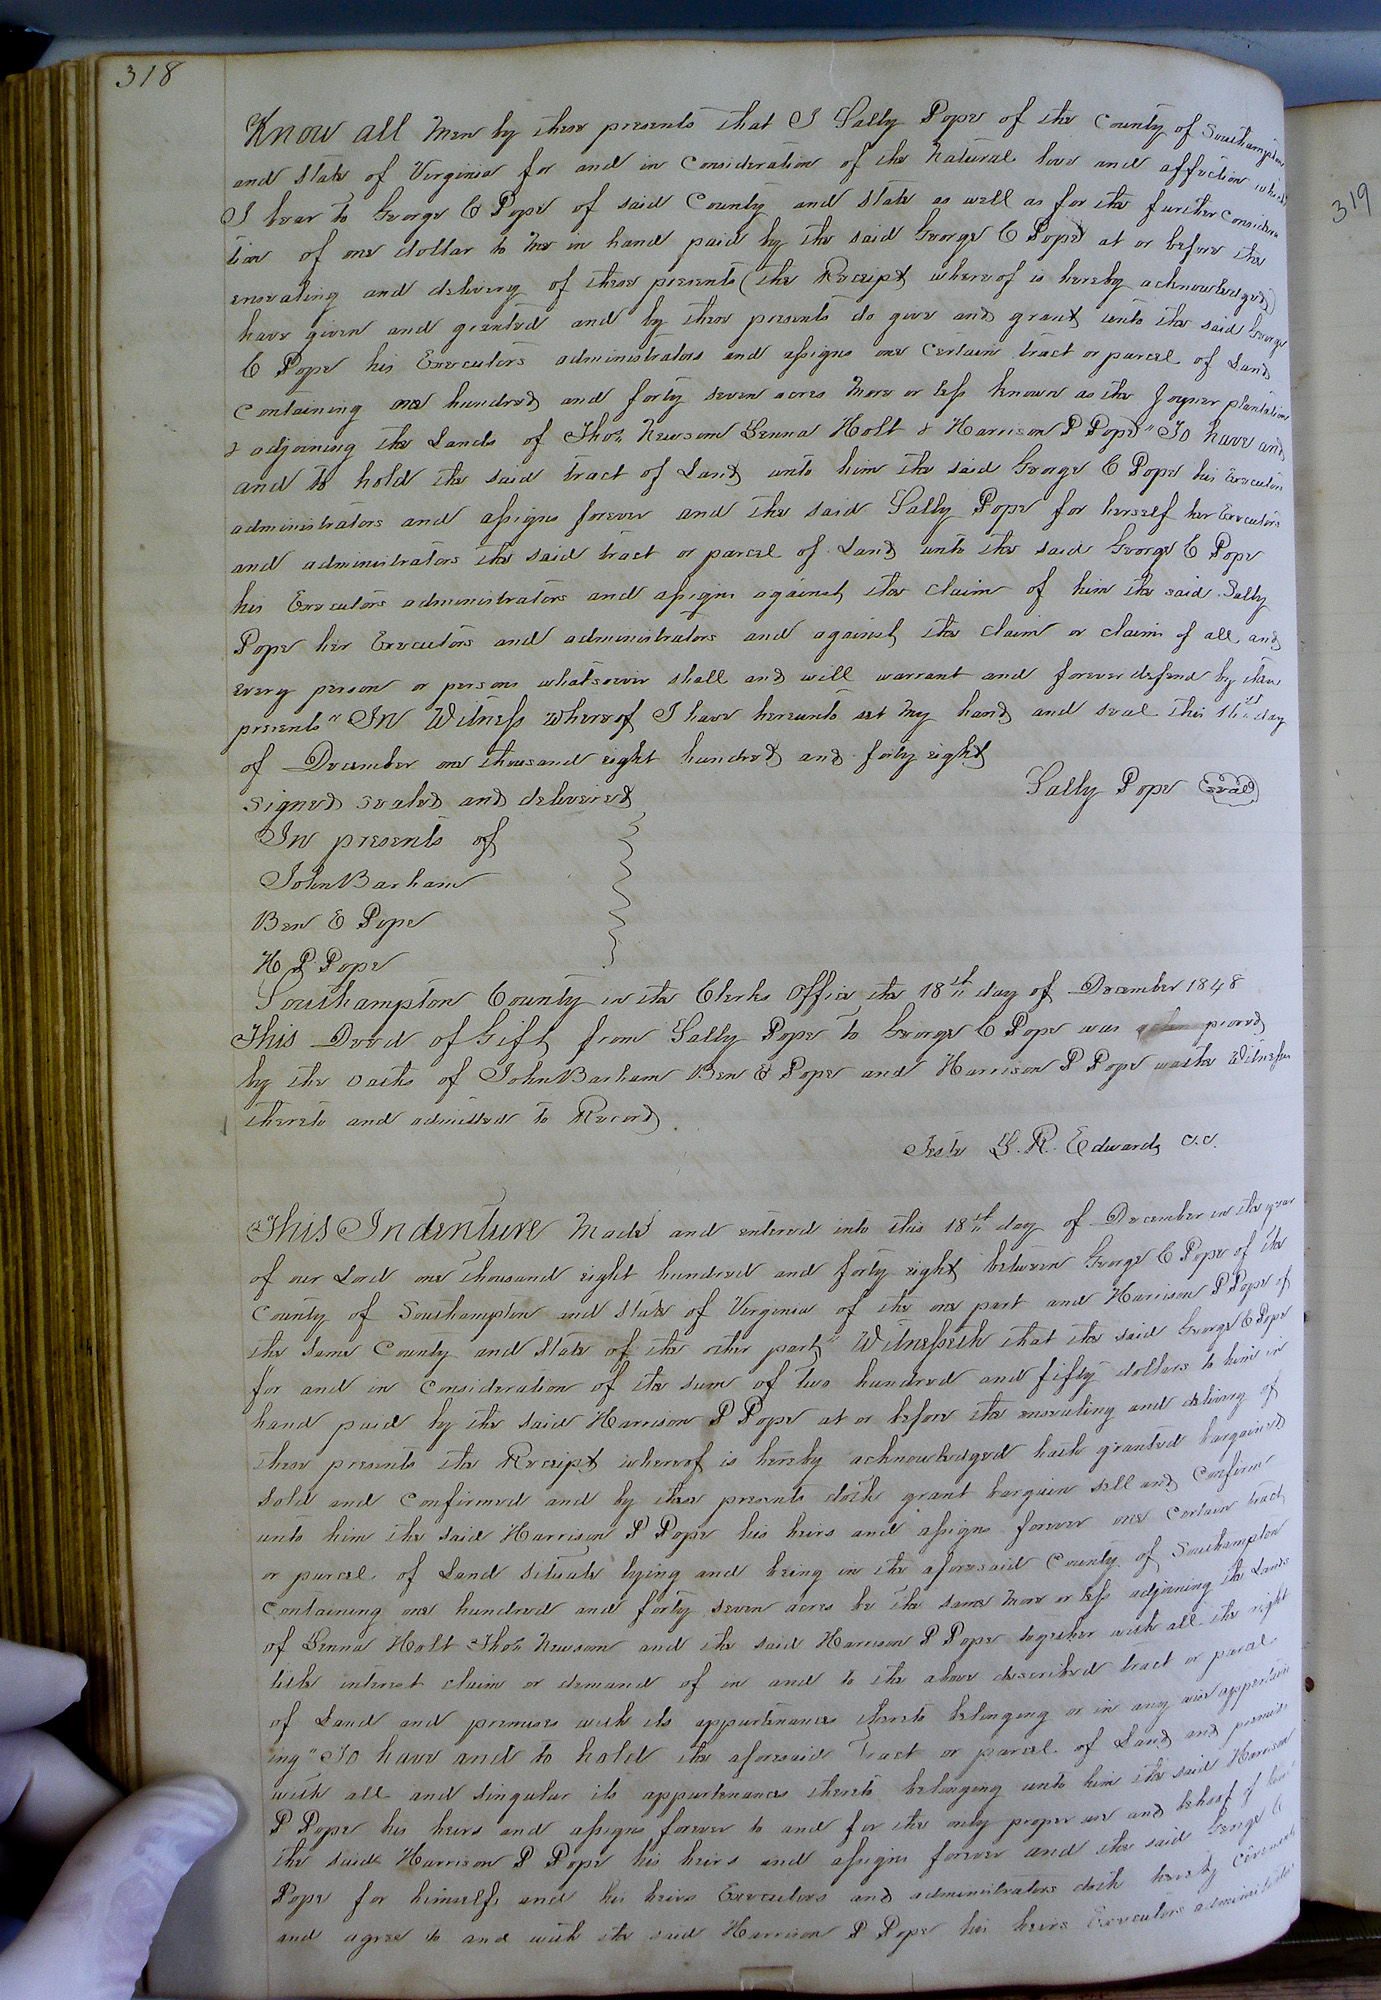 318
Know all men by these presents that I Sally Pope of the County of Southampton
and State of Virginia for and in Consideration of the Natural love and affection which
I bear to George C Pope of said County and State as well as for the further considera
tion of one dollar to me in hand paid by the said George C Pope at or before the
ensealing and delivery of these presents (the Receipt whereof is hereby acknowledged)
have given and granted and by these presents do give and grant unto the said George
C Pope his Executors administrators and assigns one certain tract or parcel of Land
Containing one hundred and forty seven acres more or less known as the Joyner plantation
& adjoining the Lands of Thos. Newsom Genna Holt & Harrison P Pope" To have and
and to hold the said tract of Land unto him the said George C Pope his Executors
administrators and assigns forever and the said Sally Pope for herself her Executors
and administrators the said tract or parcel of Land unto the said George C Pope
his Executors administrators and assigns against the claim of him the said Sally
Pope her Executors and administrators and against the claim or claims of all and
every person or persons whatsoever shall and will warrant and forever defend by these
presents" In Witness whereof I have hereunto set my hand and seal this day
of December one thousand eight hundred and forty eight
Sally Pope Seal
Signed Sealed and delivered
In presents of
John Barham
Ben E Pope
H P Pope
Southampton County in the Clerks Office the 18th day of December 1848
This Deed of Gift from Sally Pope to George C Pope was proved
by the oaths of John Barham Ben E Pope and Harrison P Pope Witnesses
thereto and admitted to Record.
Teste L. R. Edwards C.C.
This Indenture Made and entered into this 18th day of December in the year
of our Lord one thousand eight hundred and forty eight between George C Pope of the
County of Southampton and State of Virginia of the one part and Harrison P Pope of
the same County and State of the other part" Witnesseth that the said George C Pope
for and in Consideration of the sum of two hundred and fifty dollars to him in
hand paid by the said Harrison P Pope at or before the ensealing and delivery of
these presents the Receipt whereof is hereby acknowledged hath granted bargained
Sold and Confirmed and by these presents doth grant bargain sell and Confirm
unto him the said Harrison P Pope his heirs and assigns forever one certain tract
or parcel of Land situate lying and being in the aforesaid County of Southampton
Containing one hundred and forty seven acres be the same more or less adjoining the Lands
of Genna Holt Thos. Newsom and the said Harrison P Pope together with all the right
title interest claim or demand of in and to the above described tract or parcel
of Land and premises with its appurtenances thereto belonging or in any wise appertain
ing" To have and to hold the aforesaid tract or parcel of Land and premises
with all and singular its appurtenances thereto belonging unto him the said Harrison
P Pope his heirs and assigns forever to and for the only proper use and behoof of him
the said Harrison P Pope his heirs and assigns forever and the said George C
Pope for himself and his heirs Executors and administrators doth hereby covenant
and agree to and with the said Harrison P Pope his heirs Executors administrators
319